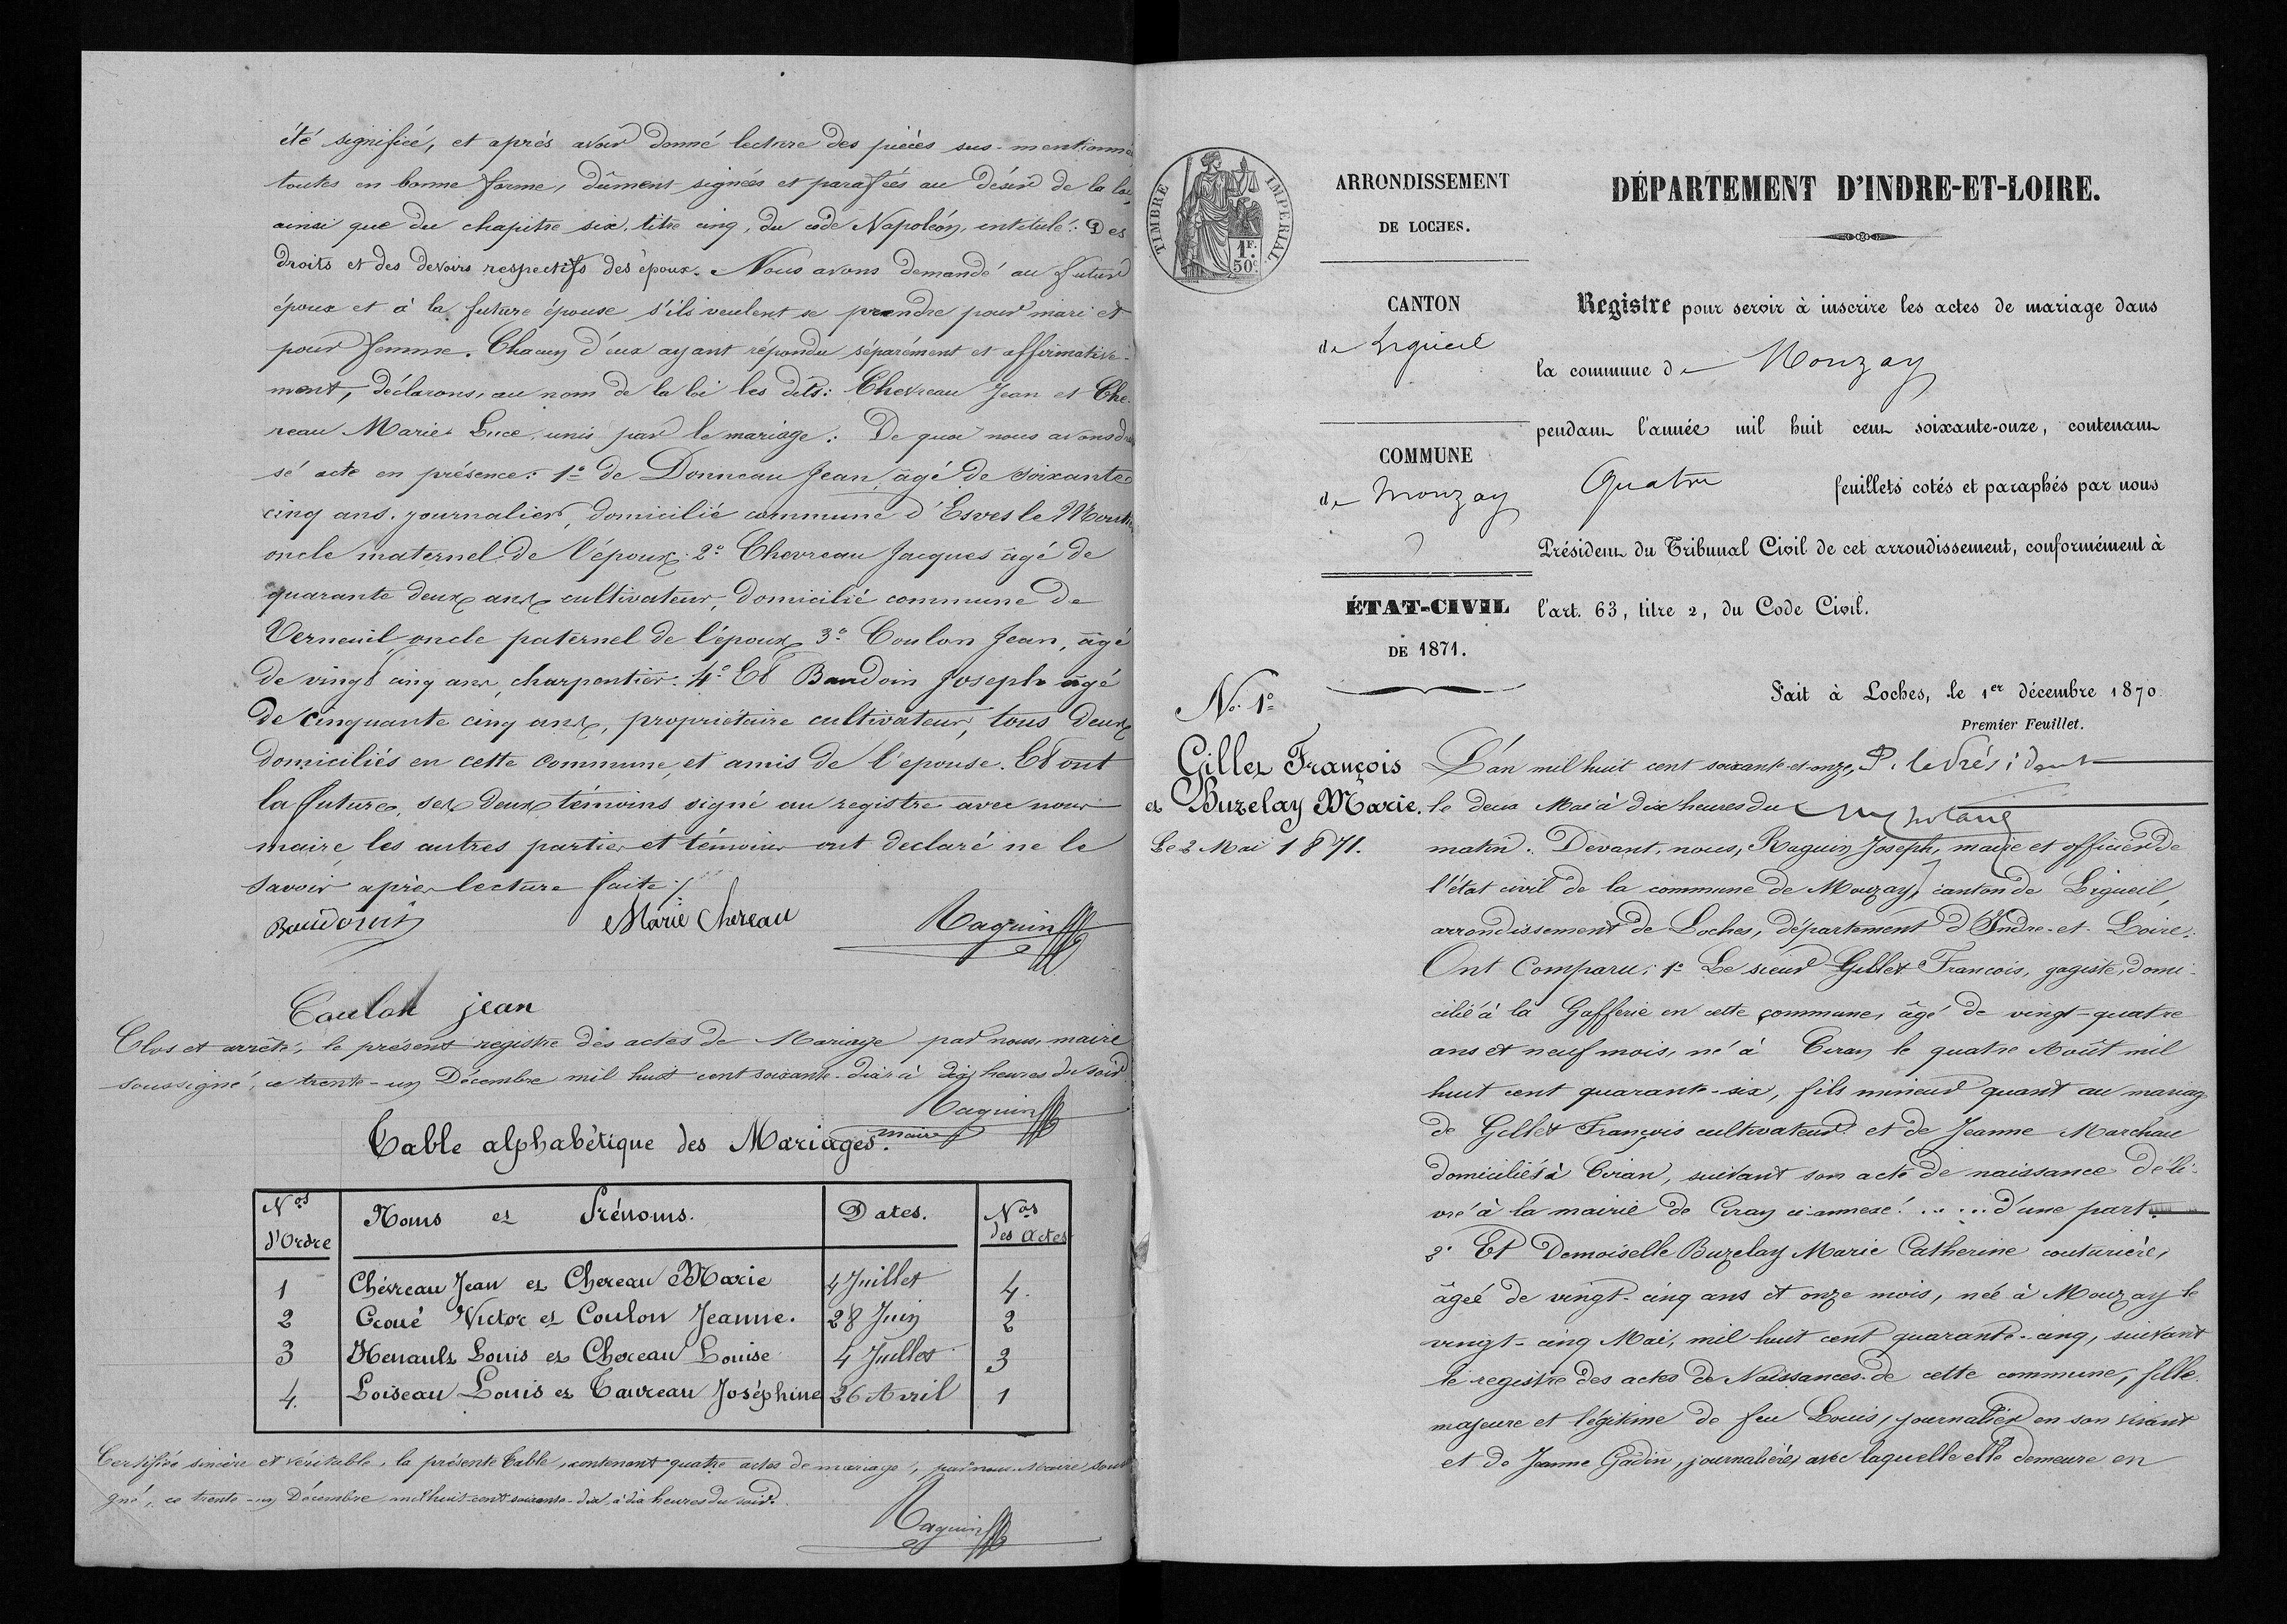 été signifiée, et après avoir donné lecture des pièces sus-mentionnée
toutes en bonne forme, dûment signées et parafées au désir de la loi,
ainsi que du chapitre six, titre cinq, du code Napoléon, intitulé: Des
droits et des devoirs respectifs des époux. Nous avons demandé au futur
époux et à la future épouse s'ils veulent se prendre pour mari et
pour femme. Chacun d'eux ayant répondu séparément et affirmative-
ment, déclarons, au nom de la loi les dits: Chevreau Jean et Che-
reau Marie Luce, unis par le mariage: De quoi nous avons dres
sé acte en présence: 1º de Donneau Jean, âgé de soixante
cinq ans, journalier, domicilié commune d'Esves le Mouti
oncle maternel de l'époux. 2º Chevreau Jacques âgé de
quarante deux ans cultivateur, domicilié commune de
Verneuil oncle paternel de l'époux 3º Coulon Jean, âgé
de vingt cinq ans, charpentier. 4º Et Baudoin Joseph âgé
de cinquante cinq ans, propriétaire cultivateur, tous deux
domiciliés en cette commune, et amis de l'épouse. Et ont
la future, ses deux témoins signé au registre avec nous
maire, les autres parties et témoins ont declaré ne le
savoir après lecture faite./.
Baudouin Marie chereau Raguin
Coulon jean
Clos et arrêté, le présent registre des actes de Mariage par nous, maire
soussigné, ce trente-un Décembre mil huit cent soixante-dix à dix heures du soir.
Raguin
maire
Table alphabétique des Mariages.
Nos d'Ordre Noms et Prénoms. Dates. Nos des Actes
1 Chévreau Jean et Chereau Marie 4 Juillet 4.
2 Croué Victor et Coulon Jeanne. 28 Juin 2
3 Henault Louis et Chereau Louise 4 Juillet 3
4. Loiseau Louis et Taureau Joséphine 26 Avril 1
Certifiée sincère et véritable, la présente Table, contenant quatre actes de mariage, par nous Maire sous
gné, ce trente-un Décembre mil huit cent soixante-dix, à dix heures du soir.
Raguin
TIMBRE IMPERIAL
1F. 50c.
ARRONDISSEMENT
DE LOCHES.
CANTON
de Ligueil
COMMUNE
de Mouzay
ÉTAT-CIVIL
DE 1871.
DÉPARTEMENT D'INDRE-ET-LOIRE.
Registre pour servir à inscrire les actes de mariage dans
la commune de Mouzay
pendant l'année mil huit cent soixante-onze, contenant
Quatre feuillets cotés et paraphés par nous
Président du Tribunal Civil de cet arrondissement, conformément à
l'art. 63, titre 2, du Code Civil.
Fait à Loches, le 1er décembre 1870.
Premier Feuillet.
P. le Président
No. 1º
Gillet François
et Buzelay Marie.
Le 2 Mai 1871.
L'an mil huit cent soixante-et-onze,
le deux Mai à dix heures du
matin. Devant, nous, Raguin Joseph, maire et officier de
l'état civil de la commune de Mouzay, canton de Ligueil,
arrondissement de Loches, département d'Indre-et-Loire.
Ont Comparu: 1º Le sieur Gillet François, gagiste, domi-
cilié à la Gafferie en cette commune, âgé de vingt-quatre
ans et neuf mois, né à Ciran le quatre Août mil
huit cent quarante-six, fils mineur quant au mariag
de Gillet François cultivateur et de Jeanne Marchau
domiciliés à Ciran, suivant son acte de naissance déli-
vré à la mairie de Ciran ci-annexé. ..... d'une part.
2º Et Demoiselle Buzelay Marie Catherine couturière,
âgée de vingt-cinq ans et onze mois, née à Mouzay le
vingt-cinq Mai, mil huit cent quarante-cinq, suivant
le registre des actes de Naissances de cette commune, fille
majeure et légitime de feu Louis, journalier en son vivant
et de Jeanne Gadin, journalière, avec laquelle elle demeure en